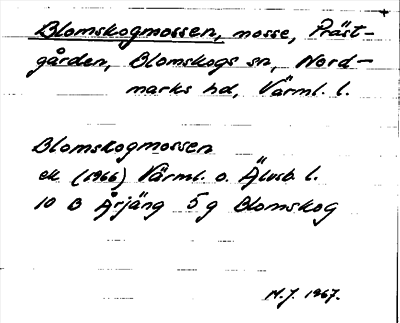 Blomskogmossen, mosse, Präst-
gården, Blomskogs sn, Nord-
marks hd, Värml. l.
Blomskogmossen
ek (1966) Värml. o. Älvsb. l.
10 B Årjäng 5g Blomskog
M.J. 1967.